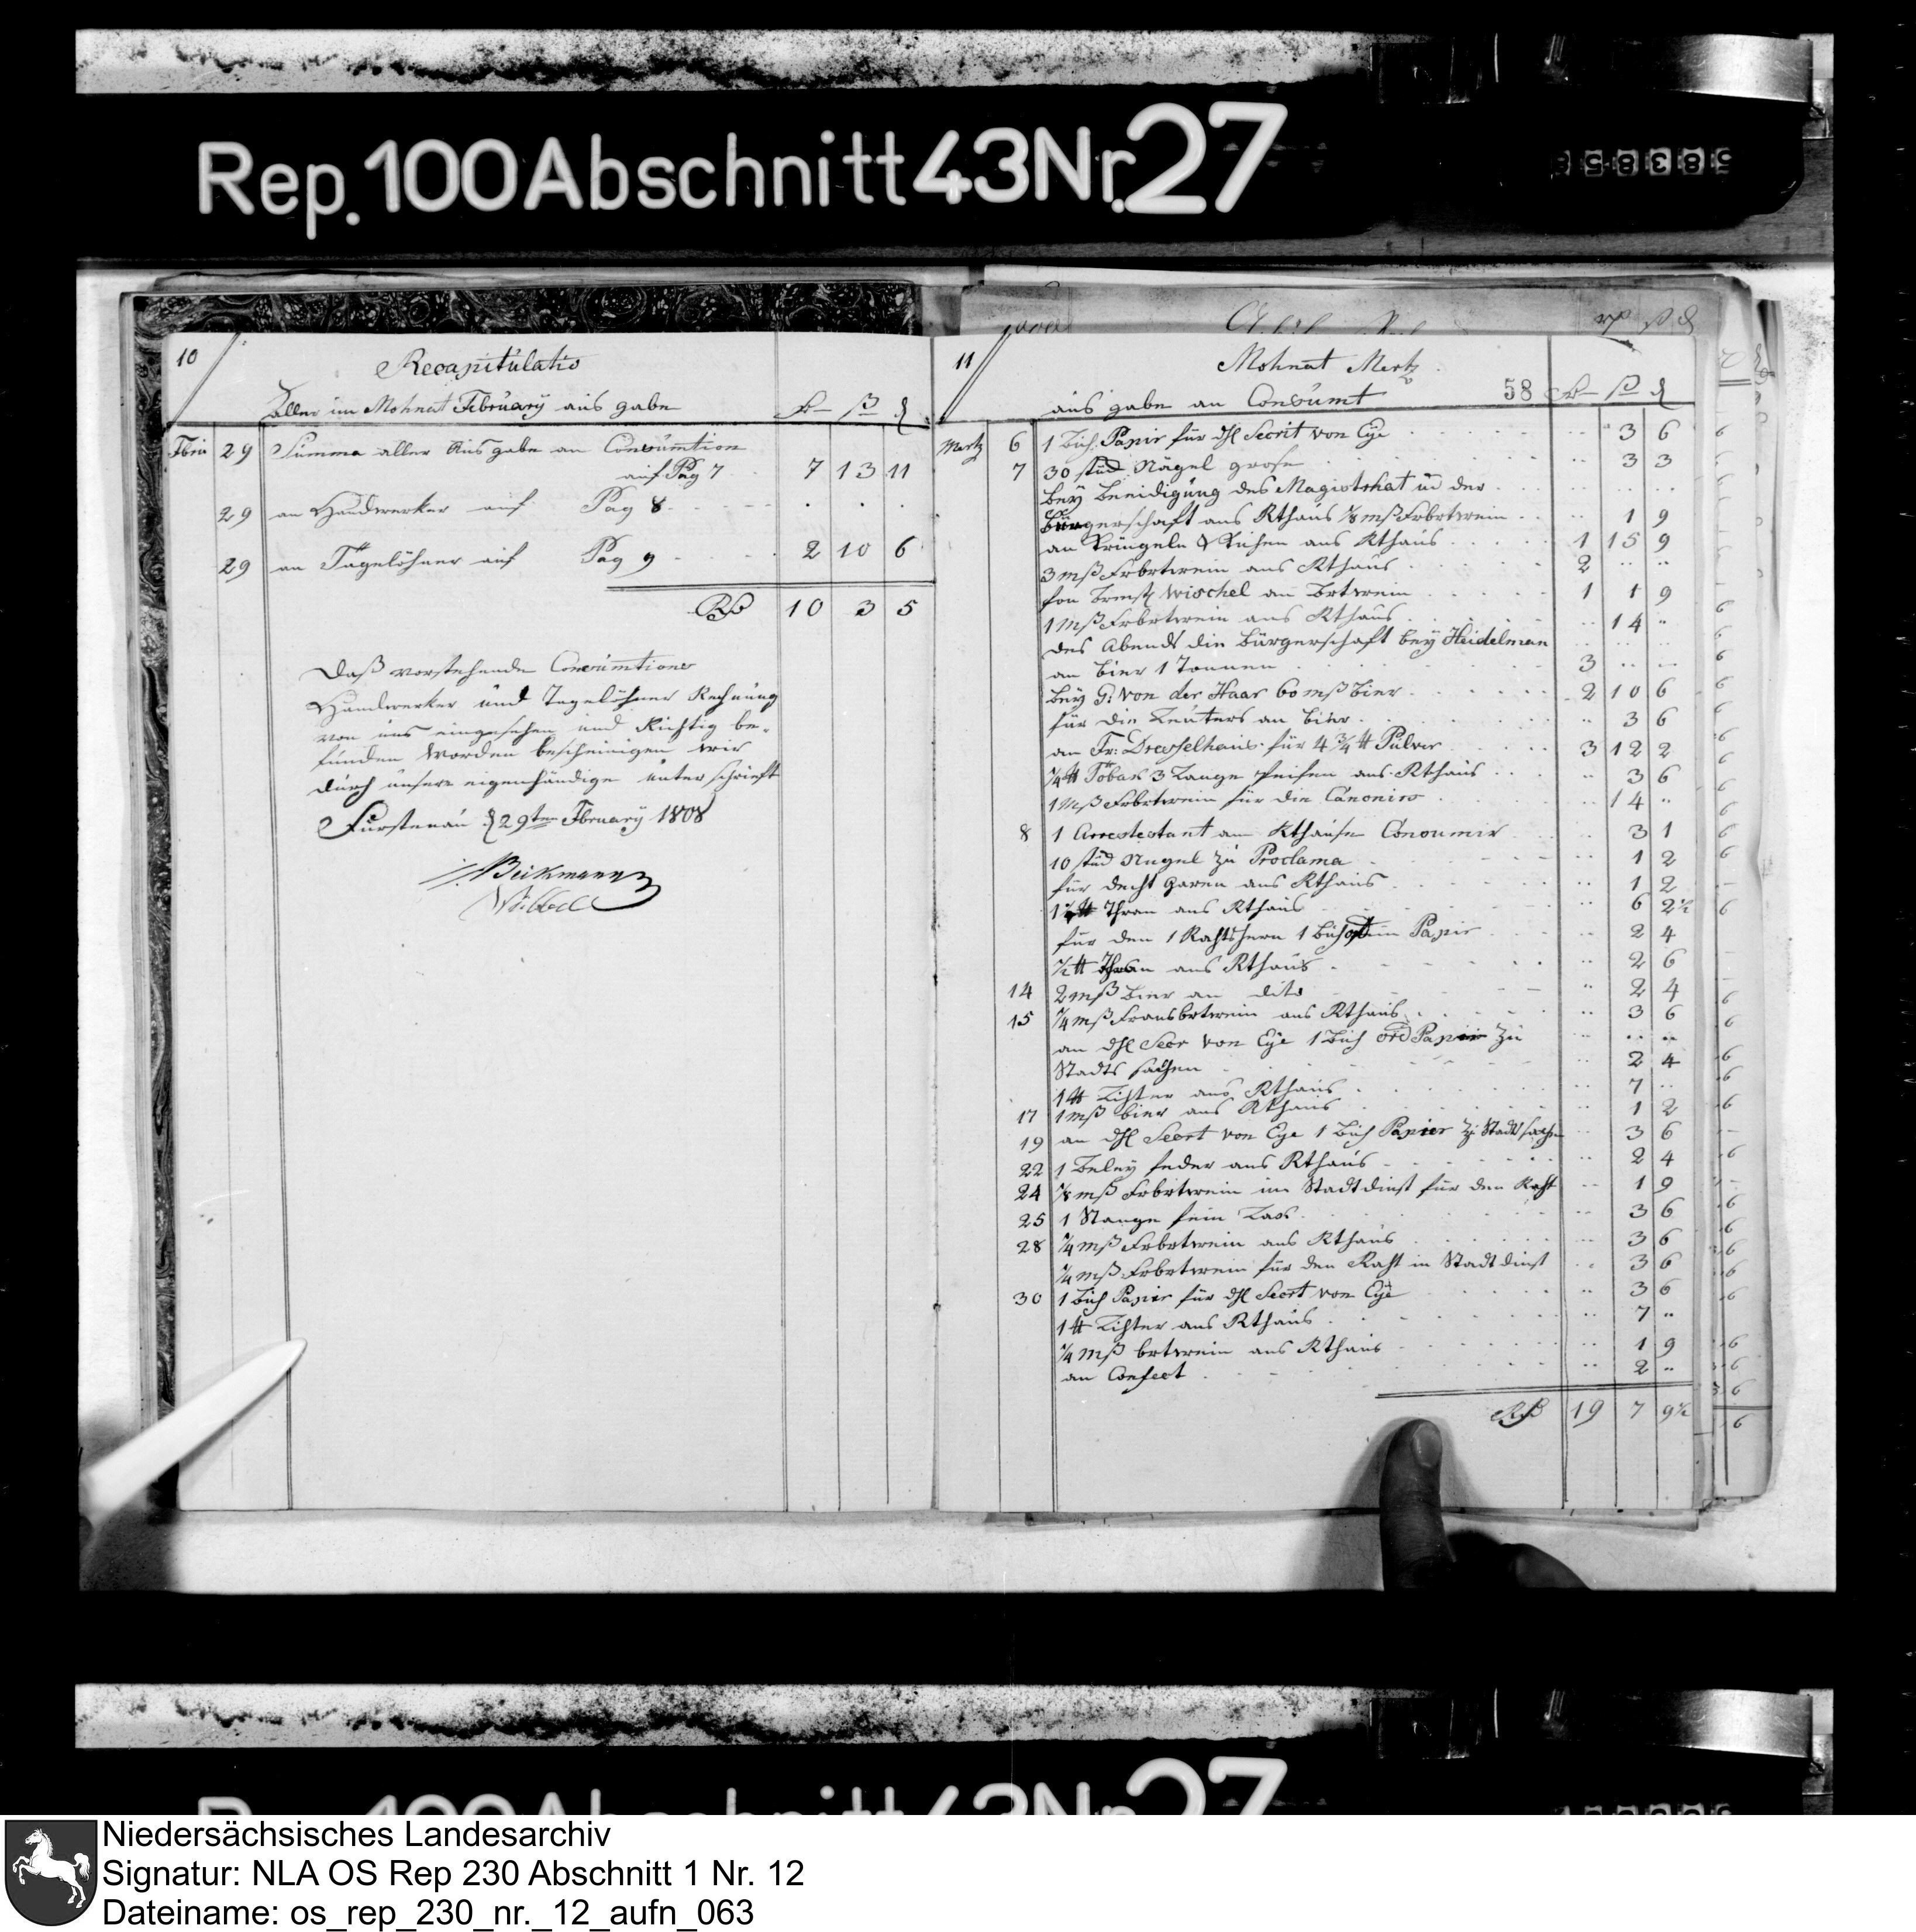 Rep. 100 Abschnitt 43 Nr. 27
10
Recapitulatio
aller im Mohnat February ausgabe
ß
Fbri 29 Summa aller Ausgabe an Consumtion
auf Pag 7 7 13 11
29 an Handwerker auf Pag 8
29 an Tagelöhner auf Pag 9 2 10 6
10 3 5
Daß vorstehende Consumtions
Handwerker und Tagelöhner Rechnung
von uns eingesehen und Richtig be-
funden worden bescheinigen wir
durch unsere eigenhändige unterschrieft
Furstenau d 29ten February 1808
Beckmann
11
Mohnat Mertz
aus gabe an Consumt
58
ß
Mertz 6 1 Buch Papir für Secrit von Eye 3 6
7 30 stück Nägel grose 3 3
bey beeidigung des Magistrhat und der
bürgerschaft aus Rthaus 1/8 mß Frbrtwein 1 9
an aus Rthaus 1 15 9
3 mß Frbrtwein aus Rthaus 2
Wischel an Brtwein 1 1 9
1 mß Frbrtwein aus Rthaus 14
des Abends die bürgerschaft bey Heidelman
an bier 1 Tonnen 3
bey G: von der Haar 60 mß bier 2 10 6
für die an bier 3 6
an Fr: Dresselhaus für 4 3/4 Pulver 3 12 2
1/4 Toback 3 Lange peifen aus Rthaus 3 6
1 mß Frbrtwein für die 14
8 1 Arrestant am Rthause 3 1
10 stück Nagel zu Proclama 1 2
für decht garen aus Rthaus 1 2
Thran aus Rthaus 6 2 1/2
für den 1 Rahtshern 1 Buch Papir 2 4
1/2 Thran aus Rthaus 2 6
14 2 mß bier an dito 2 4
15 1/4 mß Fransbrtwein aus Rthaus 3 6
an Secr von Eye 1 Buch ord Papir zu
Stadts sachen 2 4
1 Lichter aus Rthaus 7
17 1 mß bier aus Rthaus 1 2
19 an Secrt von Eye 1 Buch Papier zu Stadt sachen 3 6
22 1 feder aus Rthaus 2 4
24 1/8 mß Frbrtwein im Stadtdinst für den Raht 1 9
25 1 Stange fein Lack 3 6
28 1/4 mß Frbrtwein aus Rthaus 3 6
1/4 mß Frbrtwein für den Raht in Stadtdinst 3 6
30 1 Buch Papier für Secrt von Eye 3 6
1 Lichter aus Rthaus 7
1/4 mß brtwein aus Rthaus 1 9
an Confect 2
19 7 9 1/2
Niedersächsisches Landesarchiv
Signatur: NLA OS Rep 230 Abschnitt 1 Nr. 12
Dateiname: os_rep_230_nr._12_aufn_063